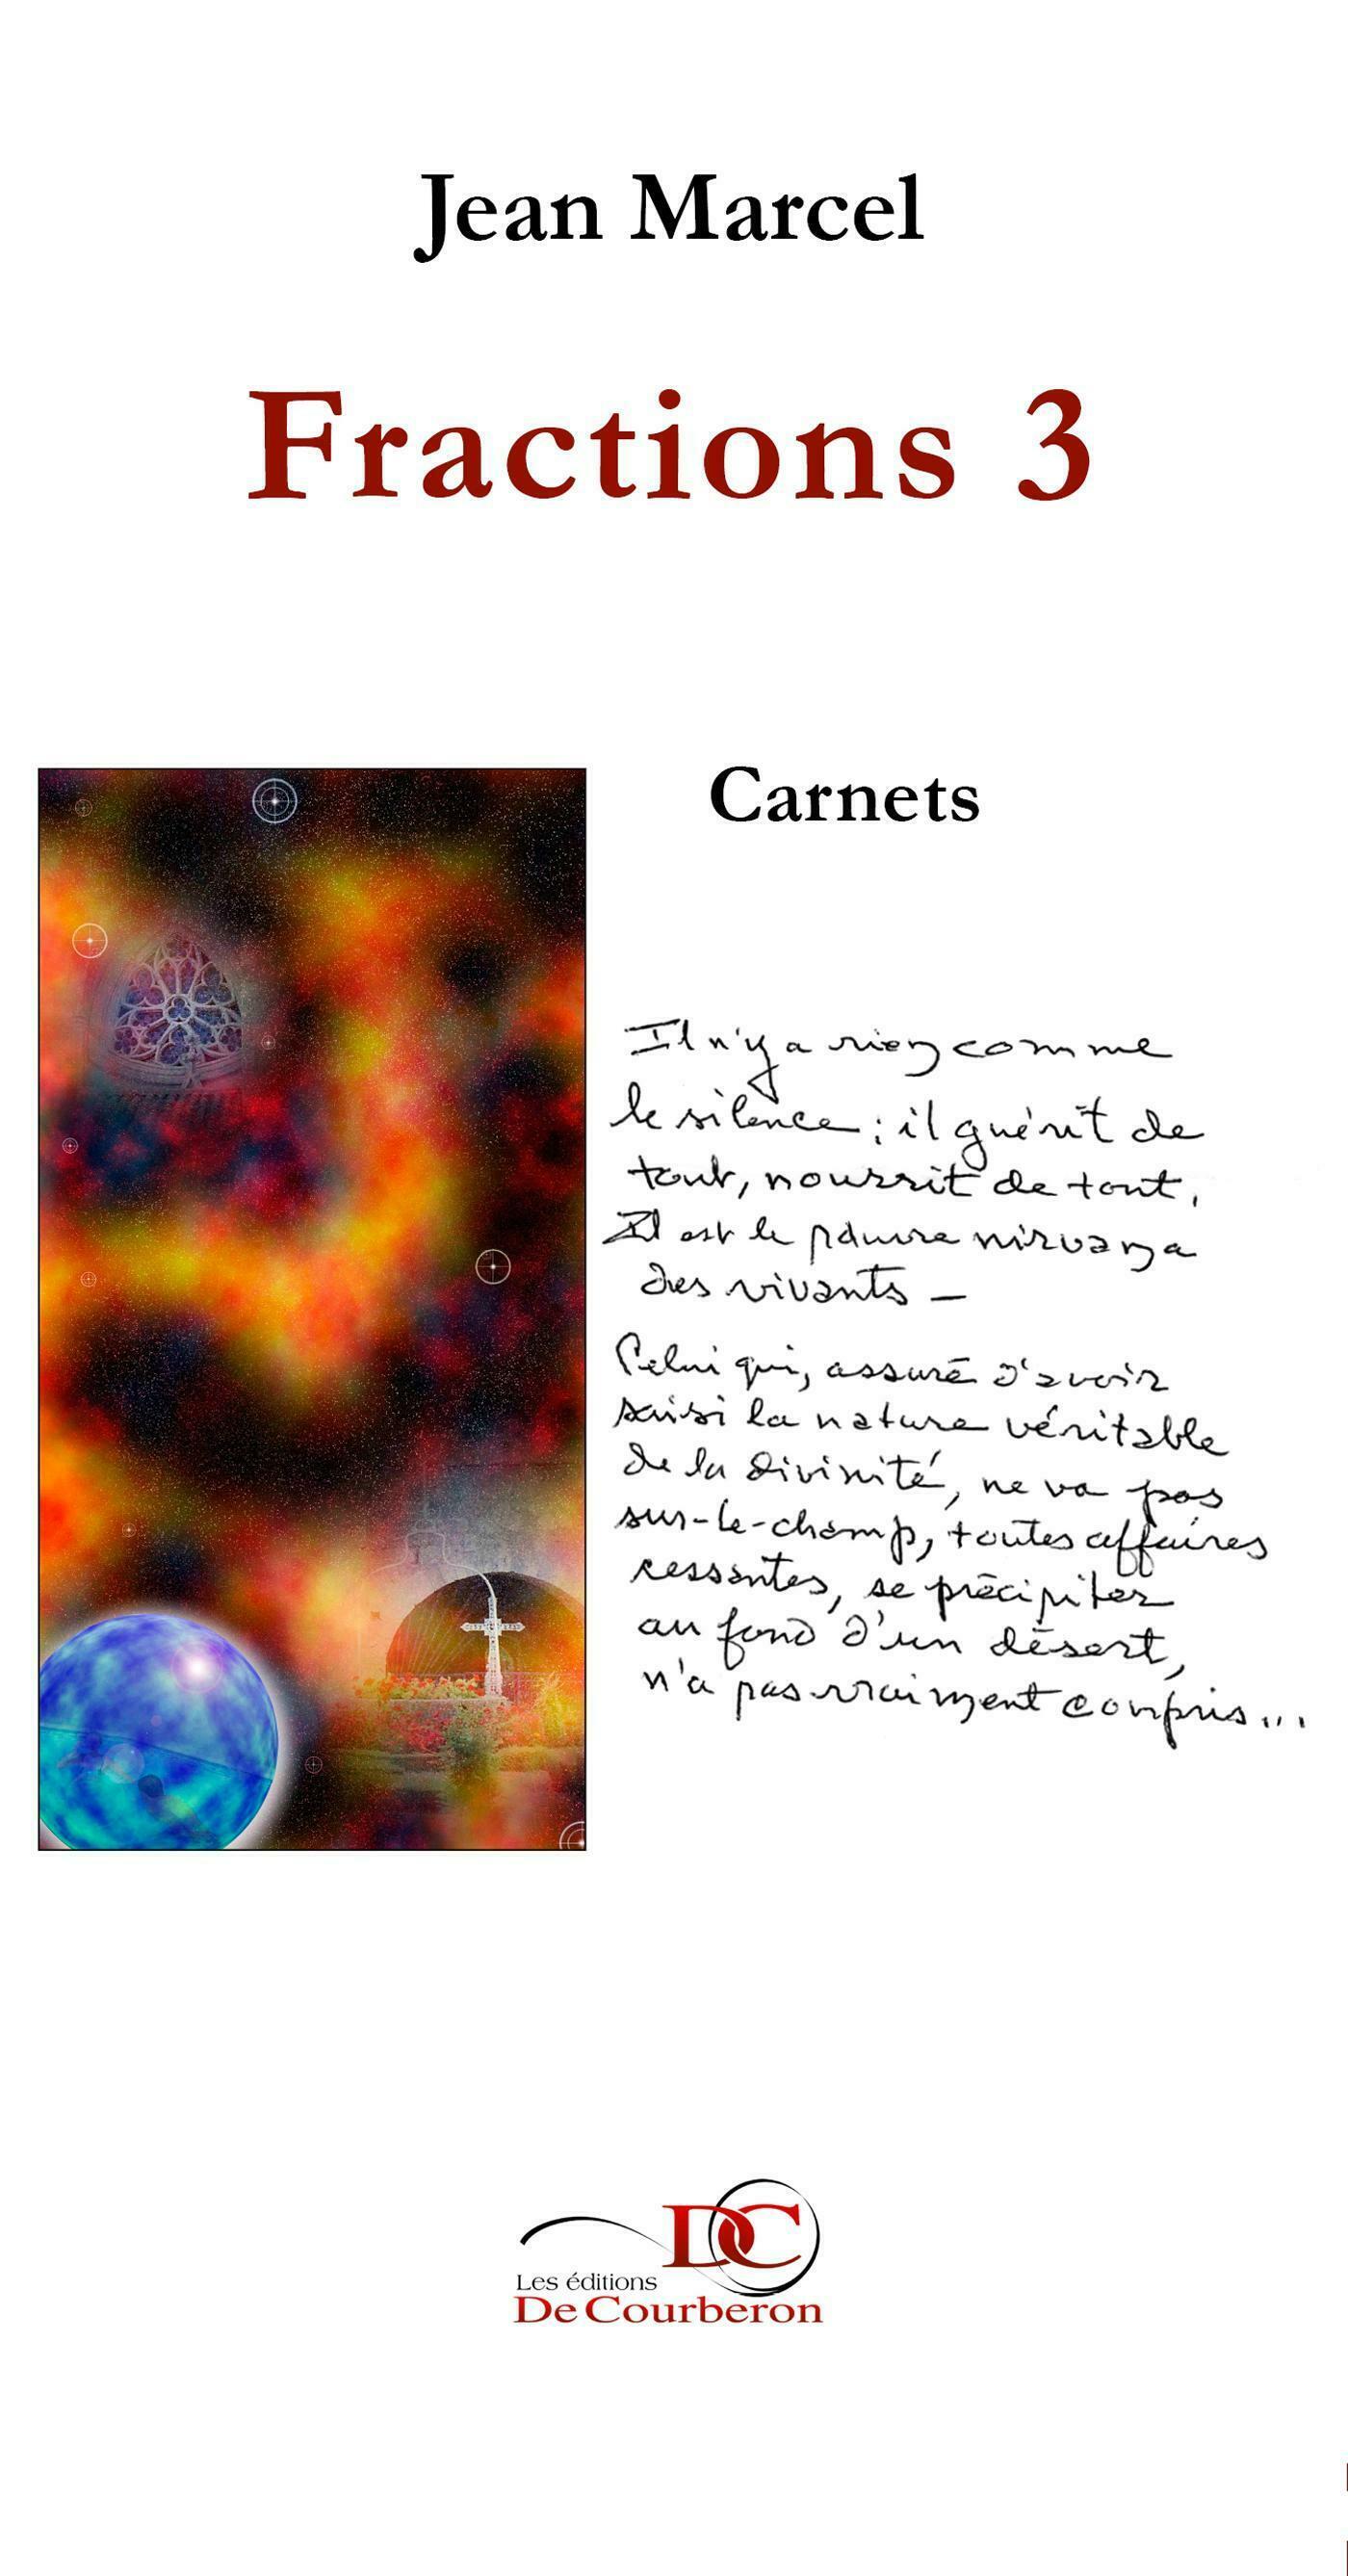 Jean Marcel
Fractions 3
Carnets
Il n'y a rien comme
le silence ; il guérit de
tout, nourrit de tout.
Il est le pauvre nirvana
des vivants —
Celui qui, assuré d'avoir
saisi la nature véritable
de la divinité, ne va pas
sur-le-champ, toutes affaires
cessantes, se précipiter
au fond d'un désert,
n'a pas vraiment compris...
DC
Les éditions
De Courberon